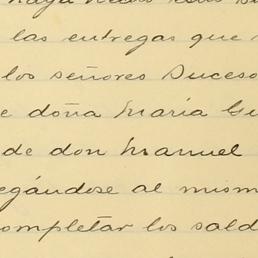 las entregas que
los señores Suceso
e doña María Gu
de don Manuel
egándose al mism
ompletar los sald